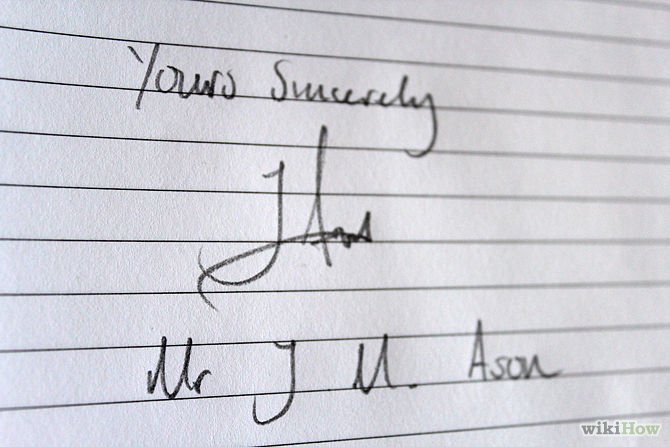 Yours Sincerely
Mr J M. Ason
wikiHow